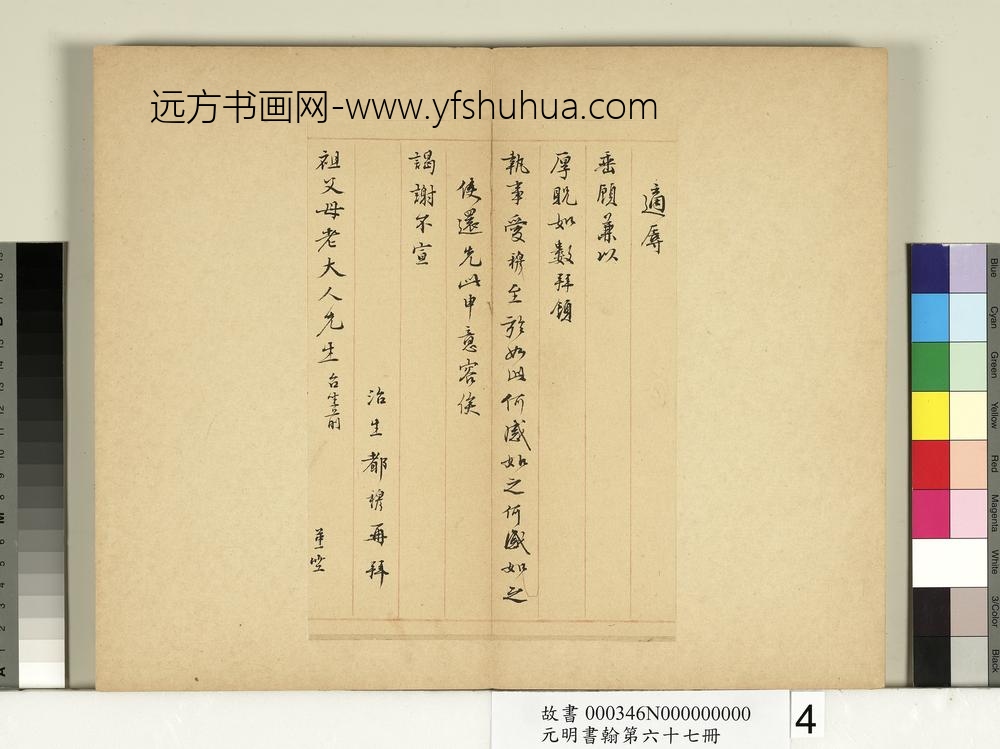 远方书画网-www.yfshuhua.com
適辱
垂顧兼以
厚貺如数拜領
執事愛穆至於如此何感如之何感如之
使還先此申意容俟
謁謝不宣
治生都穆再拜
祖父母老大人先生台坐前
Blue
Cyan
Green
Yellow
Red
Magenta
White
3/Color
Black
故書 000346N000000000
元明書翰第六十七冊
4